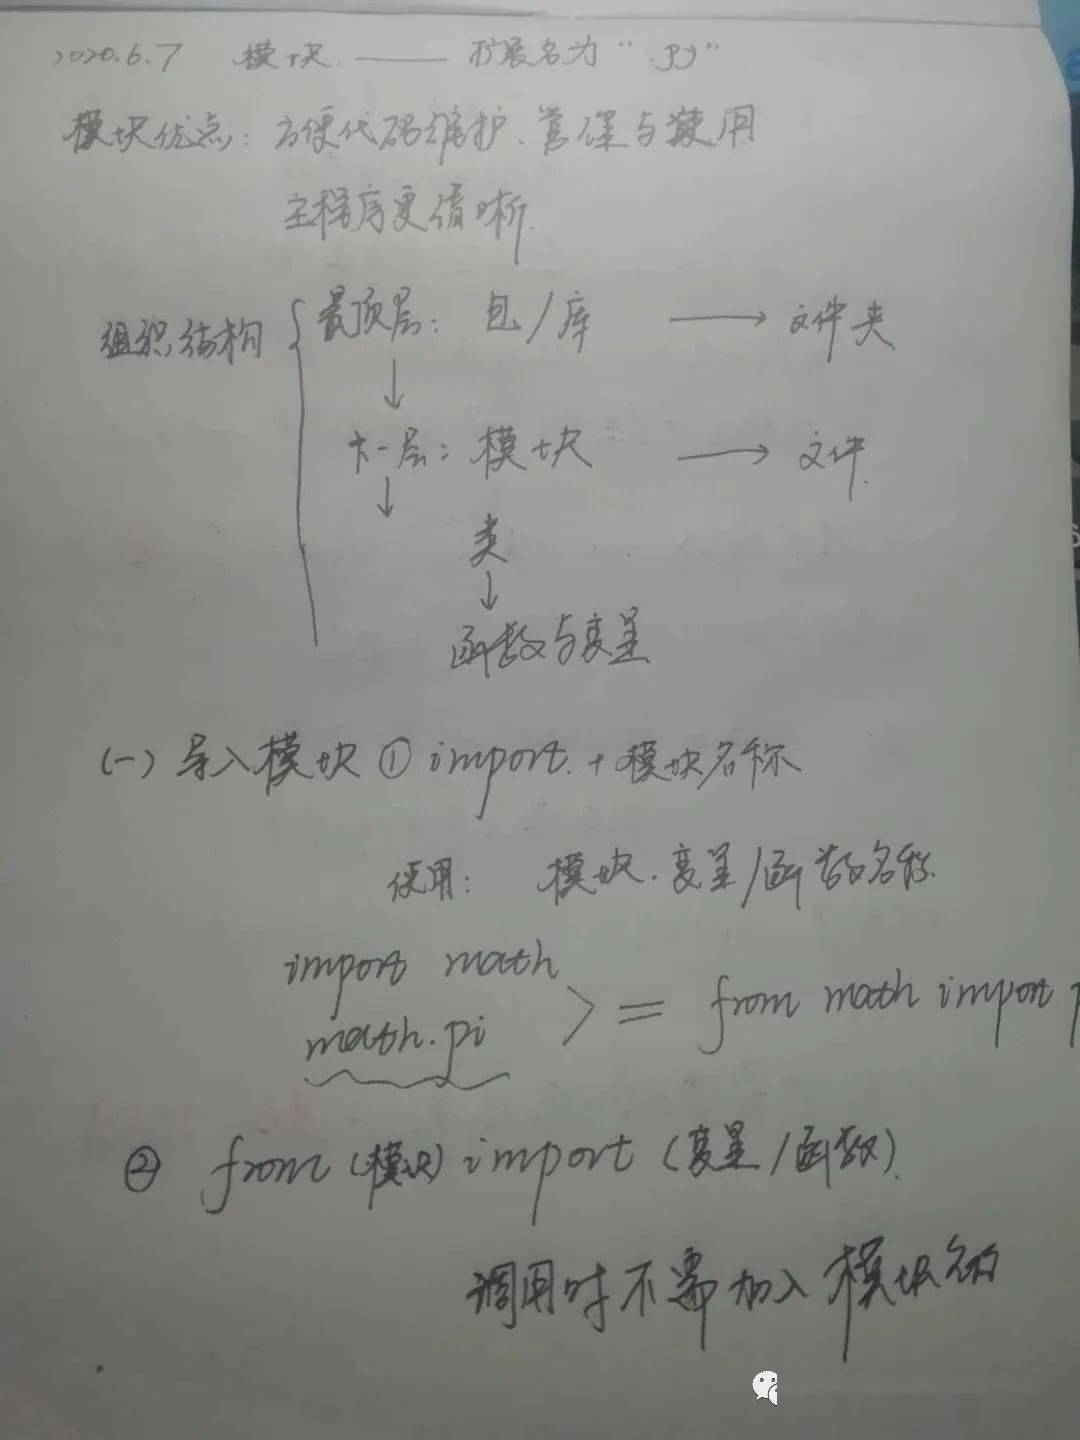 2020.6.7 模块 —— 扩展名为“.py”
模块优点：方便代码维护、管理与使用
主程序更清晰
组织结构 { 最顶层：包/库 → 文件夹
↓
下一层：模块 → 文件
↓
类
↓
函数与变量
(一) 导入模块 ① import + 模块名称
使用： 模块.变量/函数名称
import math
math.pi > = from math import p
② from (模块) import (变量/函数)
调用时不需加入模块名称